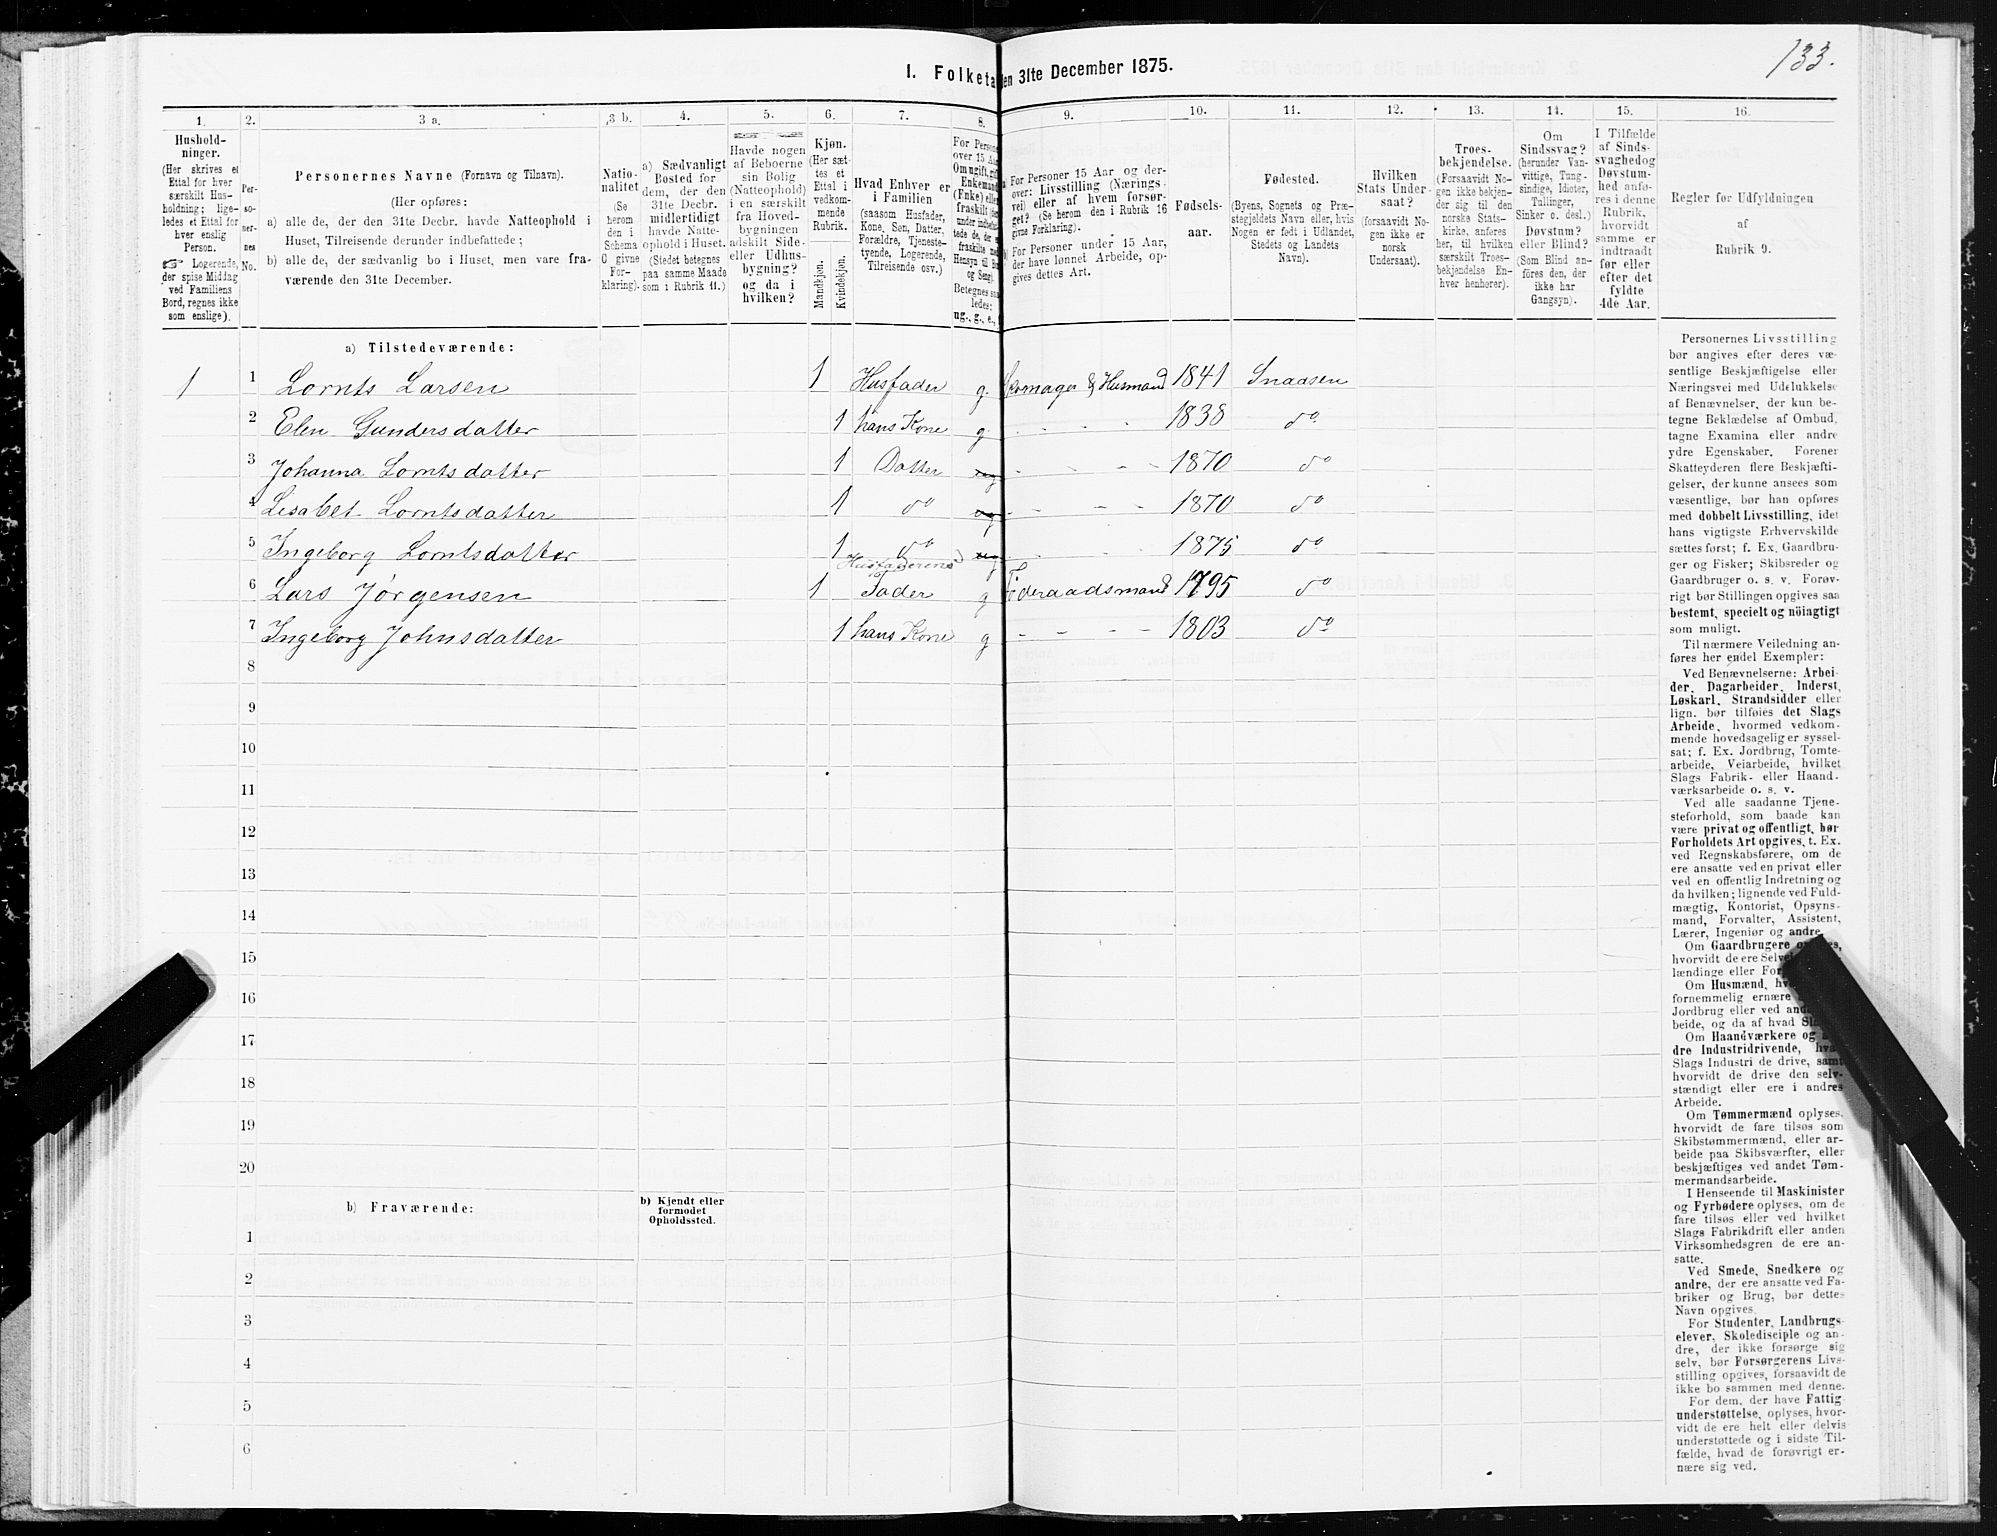 133.
I. Folketa
en 31te December 1875.
1.
2.
3 a.
3 b.
4.
5.
6.
7.
8.
9.
10.
11.
12.
13.
14.
15.
16.
Hushold-
ninger.
(Her skrives et
Ettal for hver
særskilt Hus-
holdning; lige-
ledes et Ettal for
hver enslig
Person.
☞ Logerende,
der spise Middag
ved Familiens
Bord, regnes ikke
som enslige).
Per-
so-
ner-
nes
No.
Personernes Navne (Fornavn og Tilnavn).
(Her opføres:
a) alle de, der den 31te Decbr. havde Natteophold i
Huset, Tilreisende derunder indbefattede;
b) alle de, der sædvanlig bo i Huset, men vare fra-
værende den 31te December.
Natio-
nalitet
(Se
herom
den i
Schema
C givne
For-
klaring).
a) Sædvanligt
Bosted for
dem, der den
31te Decbr.
midlertidigt
havde Natte-
ophold i Huset.
(Stedet betegnes
paa samme Maade
som i Rubrik 11.)
Havde nogen
af Beboerne
sin Bolig
(Natteophold)
i en særskilt
fra Hoved-
bygningen
adskilt Side-
eller Udhus-
bygning?
og da i
hvilken?
Kjøn.
(Her sæt-
tes et
Ettal i
vedkom-
mende
Rubrik.
Mandkjøn.
Kvindekjøn.
Hvad Enhver er
i Familien
(saasom Husfader,
Kone, Søn, Datter,
Forældre, Tjeneste-
tyende, Logerende,
Tilreisende osv.)
For Person
over 15 Aar
Om ugift, gift
Enkemand
(Enke) eller
fraskilt
under indbefat-
tede de, der e
fraskilte med
Hensyn til Bo
og Seng).
Betegnes saa
ledes:
ug., g., e.,
a) For Personer 15 Aar og der-
over: Livsstilling (Nærings-
vei) eller af hvem forsør-
get? (Se herom den i Rubrik 16
givne Forklaring).
b) For Personer under 15 Aar,
der have lønnet Arbeide, op-
gives dettes Art.
Fødsels-
aar.
Fødested.
(Byens, Sognets og Præ-
stegjeldets Navn eller, hvis
Nogen er født i Udlandet,
Stedets og Landets
Navn).
Hvilken
Stats Under-
saat?
(forsaavidt No-
gen ikke er
norsk
Undersaat).
Troes-
bekjendelse.
(Forsaavidt No-
gen ikke bekjen-
der sig til den
norske Stats-
kirke, anføres
her, til hvilken
særskilt Troes-
bekjendelse En-
hver henhører).
Om
Sindssvag?
(herunder Van-
vittige, Tung-
sindige, Idioter,
Tullinger,
Sinker o. desl.)
Døvstum?
eller Blind?
(Som Blind an-
føres den, der
ikke har
Gangsyn).
I Tilfælde
af Sinds-
svaghed og
Døvstum-
hed anfø-
res i denne
Rubrik,
hvorvidt
samme er
indtraadt
før eller
efter det
fyldte
4de Aar.
Regler for Udfyldningen
af
Rubrik 9.
a) Tilstedeværende:
1 1 Lornts Larsen 1 Husfader g. Skomager & Husmand 1841 Snaasen
2 Elen Gundersdatter 1 hans Kone g - - - - 1838 do
3 Johanna Lorntsdatter 1 Datter ug - - - - 1870 do
4 Lisabet Lorntsdatter 1 do ug - - - - 1870 do
5 Ingeborg Lorntsdatter 1 do ug - - - - 1875 do
Husfaderens
6 Lars Jørgensen 1 Fader g Føderaadsmand 1795 do
7 Ingeborg Johnsdatter 1 hans Kone g - - - - 1803 do
8
9
10
11
12
13
14
15
16
17
18
19
20
b) Fraværende:
b) Kjendt eller
formodet
Opholdssted.
1
2
3
4
5
6
Personernes Livsstilling
bør angives efter deres væ-
sentlige Beskjæftigelse eller
Næringsvei med Udelukkelse
af Benævnelser, der kun be-
tegne Beklædelse af Ombud,
tagne Examina eller andre
ydre Egenskaber. Forener
Skatteyderen flere Beskjæfti-
gelser, der kunne ansees som
væsentlige, bør han opføres
med dobbelt Livsstilling, idet
hans vigtigste Erhvervskilde
sættes først; f. Ex. Gaardbru-
ger og Fisker; Skibsreder og
Gaardbruger o. s. v. Forøv-
rigt bør Stillingen opgives saa
bestemt, specielt og nöiagtigt
som muligt.
Til nærmere Veiledning an-
føres her endel Exempler:
Ved Benævnelserne: Arbei-
der, Dagarbeider, Inderst,
Løskarl, Strandsidder eller
lign. bør tilføies det Slags
Arbeide, hvormed vedkom-
mende hovedsagelig er syssel-
sat; f. Ex. Jordbrug, Tomte-
arbeide, Veiarbeide, hvilket
Slags Fabrik- eller Haand-
værksarbeide o. s. v.
Ved alle saadanne Tjene-
steforhold, som baade kan
være privat og offentligt, bør
Forholdets Art opgives, t. Ex.
ved Regnskabsførere, om de
ere ansatte ved en privat eller
ved en offentlig Indretning og
da hvilken; lignende ved Fuld-
mægtig, Kontorist, Opsyns-
mand, Forvalter, Assistent,
Lærer, Ingeniør og andre.
Om Gaardbrugere
hvorvidt de ere Selv
lændinge eller For
Om Husmænd,
fornemmelig ernære
Jordbrug eller ved
beide, og da af hvad
Om Haandværkere og
dre Industridrivende,
Slags Industri de drive, samt
hvorvidt de drive den selv-
stændigt eller ere i andres
Arbeide.
Om Tømmermænd oplyses,
hvorvidt de fare tilsøs som
Skibstømmermænd, eller ar-
beide paa Skibsværfter, eller
beskjæftiges ved andet Tøm-
mermandsarbeide.
I Henseende til Maskinister
og Fyrbødere oplyses, om de
fare tilsøs eller ved hvilket
Slags Fabrikdrift eller anden
Virksomhedsgren de ere an-
satte.
Ved Smede, Snedkere og
andre, der ere ansatte ved Fa-
briker og Brug, bør dettes
Navn opgives.
For Studenter, Landbrugs-
elever, Skoledisciple og an-
dre, der ikke forsørge sig
selv, bør Forsørgerens Livs-
stilling opgives, forsaavidt de
ikke bo sammen med denne.
For dem, der have Fattig-
understøttelse, oplyses, hvor-
vidt de ere helt eller delvis
understøttede og i sidste Til-
fælde, hvad de forøvrigt er-
nære sig ved.